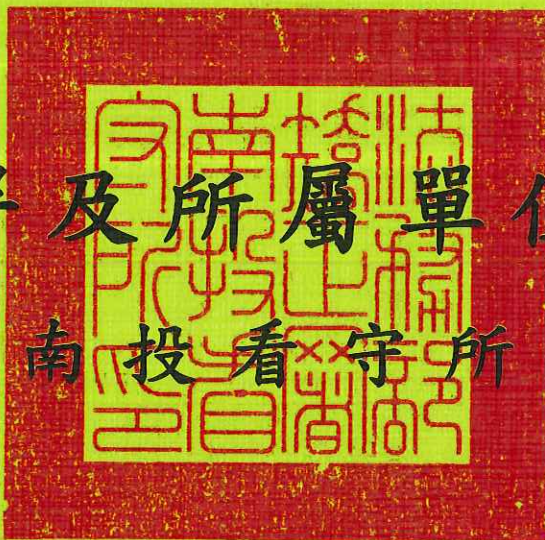 及所屬單
南投看守所
法務部
矯正署
南投看
守所印